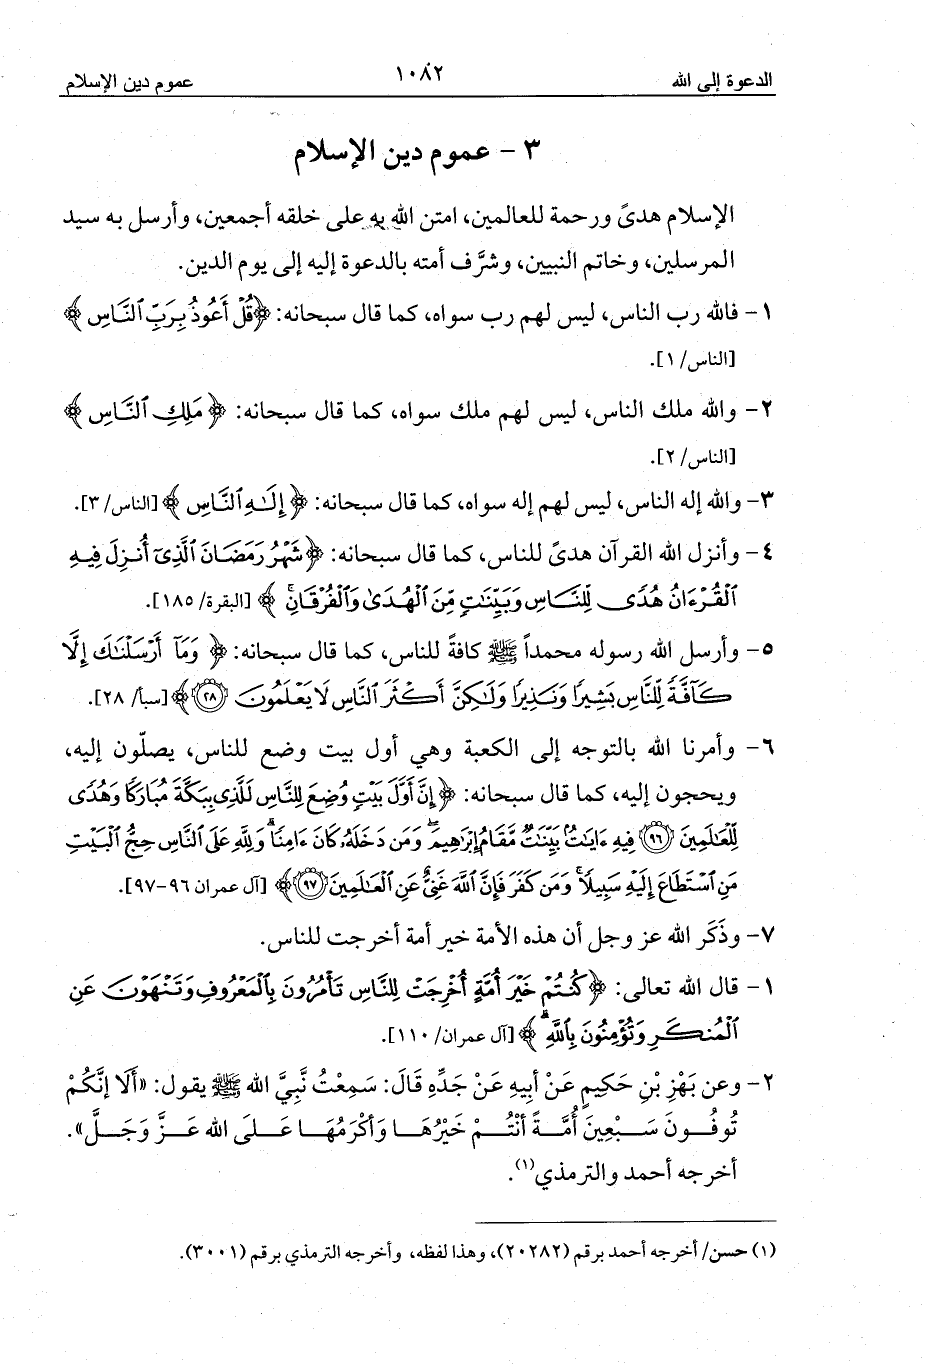 الدعوة إلى الله
١٠٨٢
عموم دين الإسلام
٣ - عموم دين الإسلام
الإسلام هدىً ورحمة للعالمين، امتن الله به على خلقه أجمعين، وأرسل به سيد
المرسلين، وخاتم النبيين، وشرَّف أمته بالدعوة إليه إلى يوم الدين.
١- فالله رب الناس، ليس لهم رب سواه، كما قال سبحانه: ﴿قُلْ أَعُوذُ بِرَبِّ ٱلنَّاسِ﴾
[الناس/ ١].
٢- والله ملك الناس، ليس لهم ملك سواه، كما قال سبحانه: ﴿مَلِكِ ٱلنَّاسِ﴾
[الناس/ ٢].
٣- والله إله الناس، ليس لهم إله سواه، كما قال سبحانه: ﴿إِلَٰهِ ٱلنَّاسِ﴾ [الناس/ ٣].
٤- وأنزل الله القرآن هدىً للناس، كما قال سبحانه: ﴿شَهْرُ رَمَضَانَ ٱلَّذِىٓ أُنزِلَ فِيهِ
ٱلْقُرْءَانُ هُدًى لِّلنَّاسِ وَبَيِّنَٰتٍ مِّنَ ٱلْهُدَىٰ وَٱلْفُرْقَانِ ۚ﴾ [البقرة/ ١٨٥].
٥- وأرسل الله رسوله محمداً ﷺ كافةً للناس، كما قال سبحانه: ﴿وَمَآ أَرْسَلْنَٰكَ إِلَّا
كَآفَّةً لِّلنَّاسِ بَشِيرًا وَنَذِيرًا وَلَٰكِنَّ أَكْثَرَ ٱلنَّاسِ لَا يَعْلَمُونَ ٢٨﴾ [سبأ/ ٢٨].
٦- وأمرنا الله بالتوجه إلى الكعبة وهي أول بيت وضع للناس، يصلّون إليه،
ويحجون إليه، كما قال سبحانه: ﴿إِنَّ أَوَّلَ بَيْتٍ وُضِعَ لِلنَّاسِ لَلَّذِى بِبَكَّةَ مُبَارَكًا وَهُدًى
لِّلْعَٰلَمِينَ ٩٦ فِيهِ ءَايَٰتٌۢ بَيِّنَٰتٌ مَّقَامُ إِبْرَٰهِيمَ ۖ وَمَن دَخَلَهُۥ كَانَ ءَامِنًا ۗ وَلِلَّهِ عَلَى ٱلنَّاسِ حِجُّ ٱلْبَيْتِ
مَنِ ٱسْتَطَاعَ إِلَيْهِ سَبِيلًا ۚ وَمَن كَفَرَ فَإِنَّ ٱللَّهَ غَنِىٌّ عَنِ ٱلْعَٰلَمِينَ ٩٧﴾ [آل عمران ٩٦-٩٧].
٧- وذَكَر الله عز وجل أن هذه الأمة خير أمة أخرجت للناس.
١- قال الله تعالى: ﴿كُنتُمْ خَيْرَ أُمَّةٍ أُخْرِجَتْ لِلنَّاسِ تَأْمُرُونَ بِٱلْمَعْرُوفِ وَتَنْهَوْنَ عَنِ
ٱلْمُنكَرِ وَتُؤْمِنُونَ بِٱللَّهِ ۗ﴾ [آل عمران/ ١١٠].
٢- وعن بَهْزِ بْنِ حَكِيمٍ عَنْ أبِيهِ عَنْ جَدِّهِ قَالَ: سَمِعْتُ نَّبِيَّ الله ﷺ يقول: «ألَا إنَّكُمْ
تُوفُونَ سَبْعِينَ أُمَّةً أنْتُمْ خَيْرُهَا وَأكْرَمُهَا عَلَى الله عَزَّ وَجَلَّ».
أخرجه أحمد والترمذي(١).
(١) حسن/ أخرجه أحمد برقم (٢٠٢٨٢)، وهذا لفظه، وأخرجه الترمذي برقم (٣٠٠١).